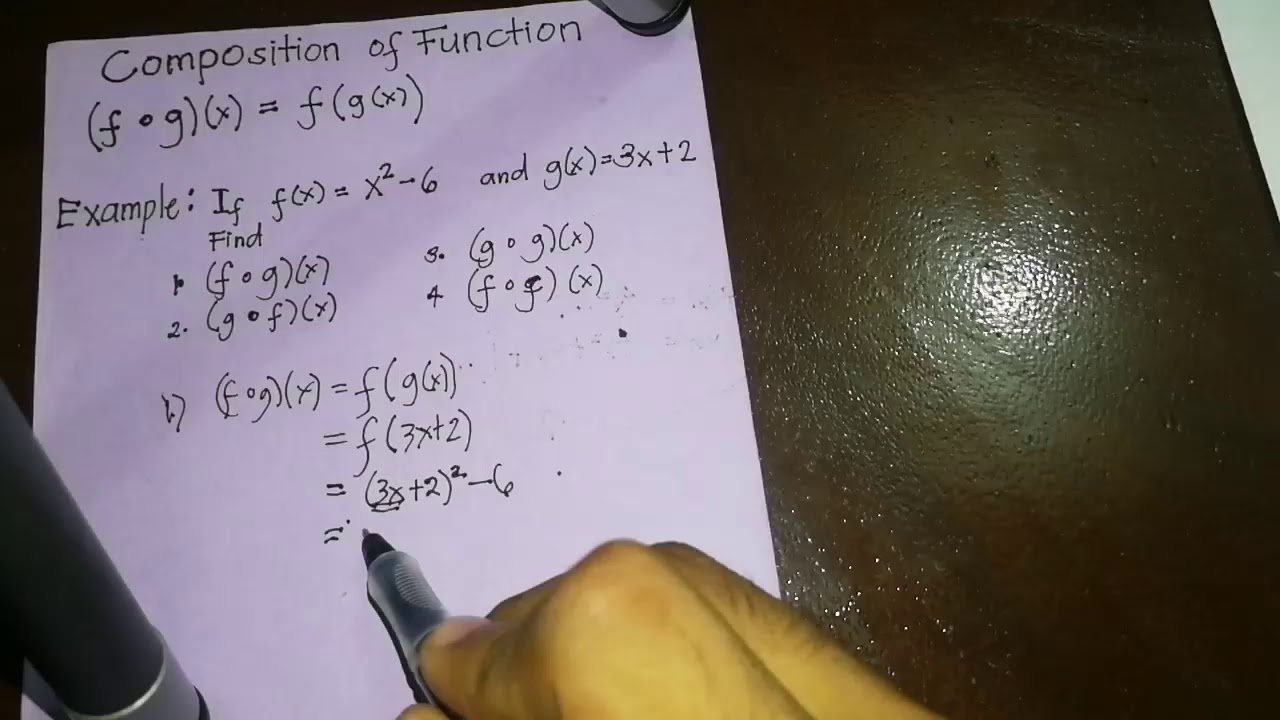 Composition of Function
(f∘g)(x) = f(g(x))
Example: If f(x) = x²-6 and g(x)=3x+2
Find
1. (f∘g)(x)
2. (g∘f)(x)
3. (g∘g)(x)
4 (f∘f)(x)
1.) (f∘g)(x) = f(g(x))
= f(3x+2)
= (3x+2)²-6
=